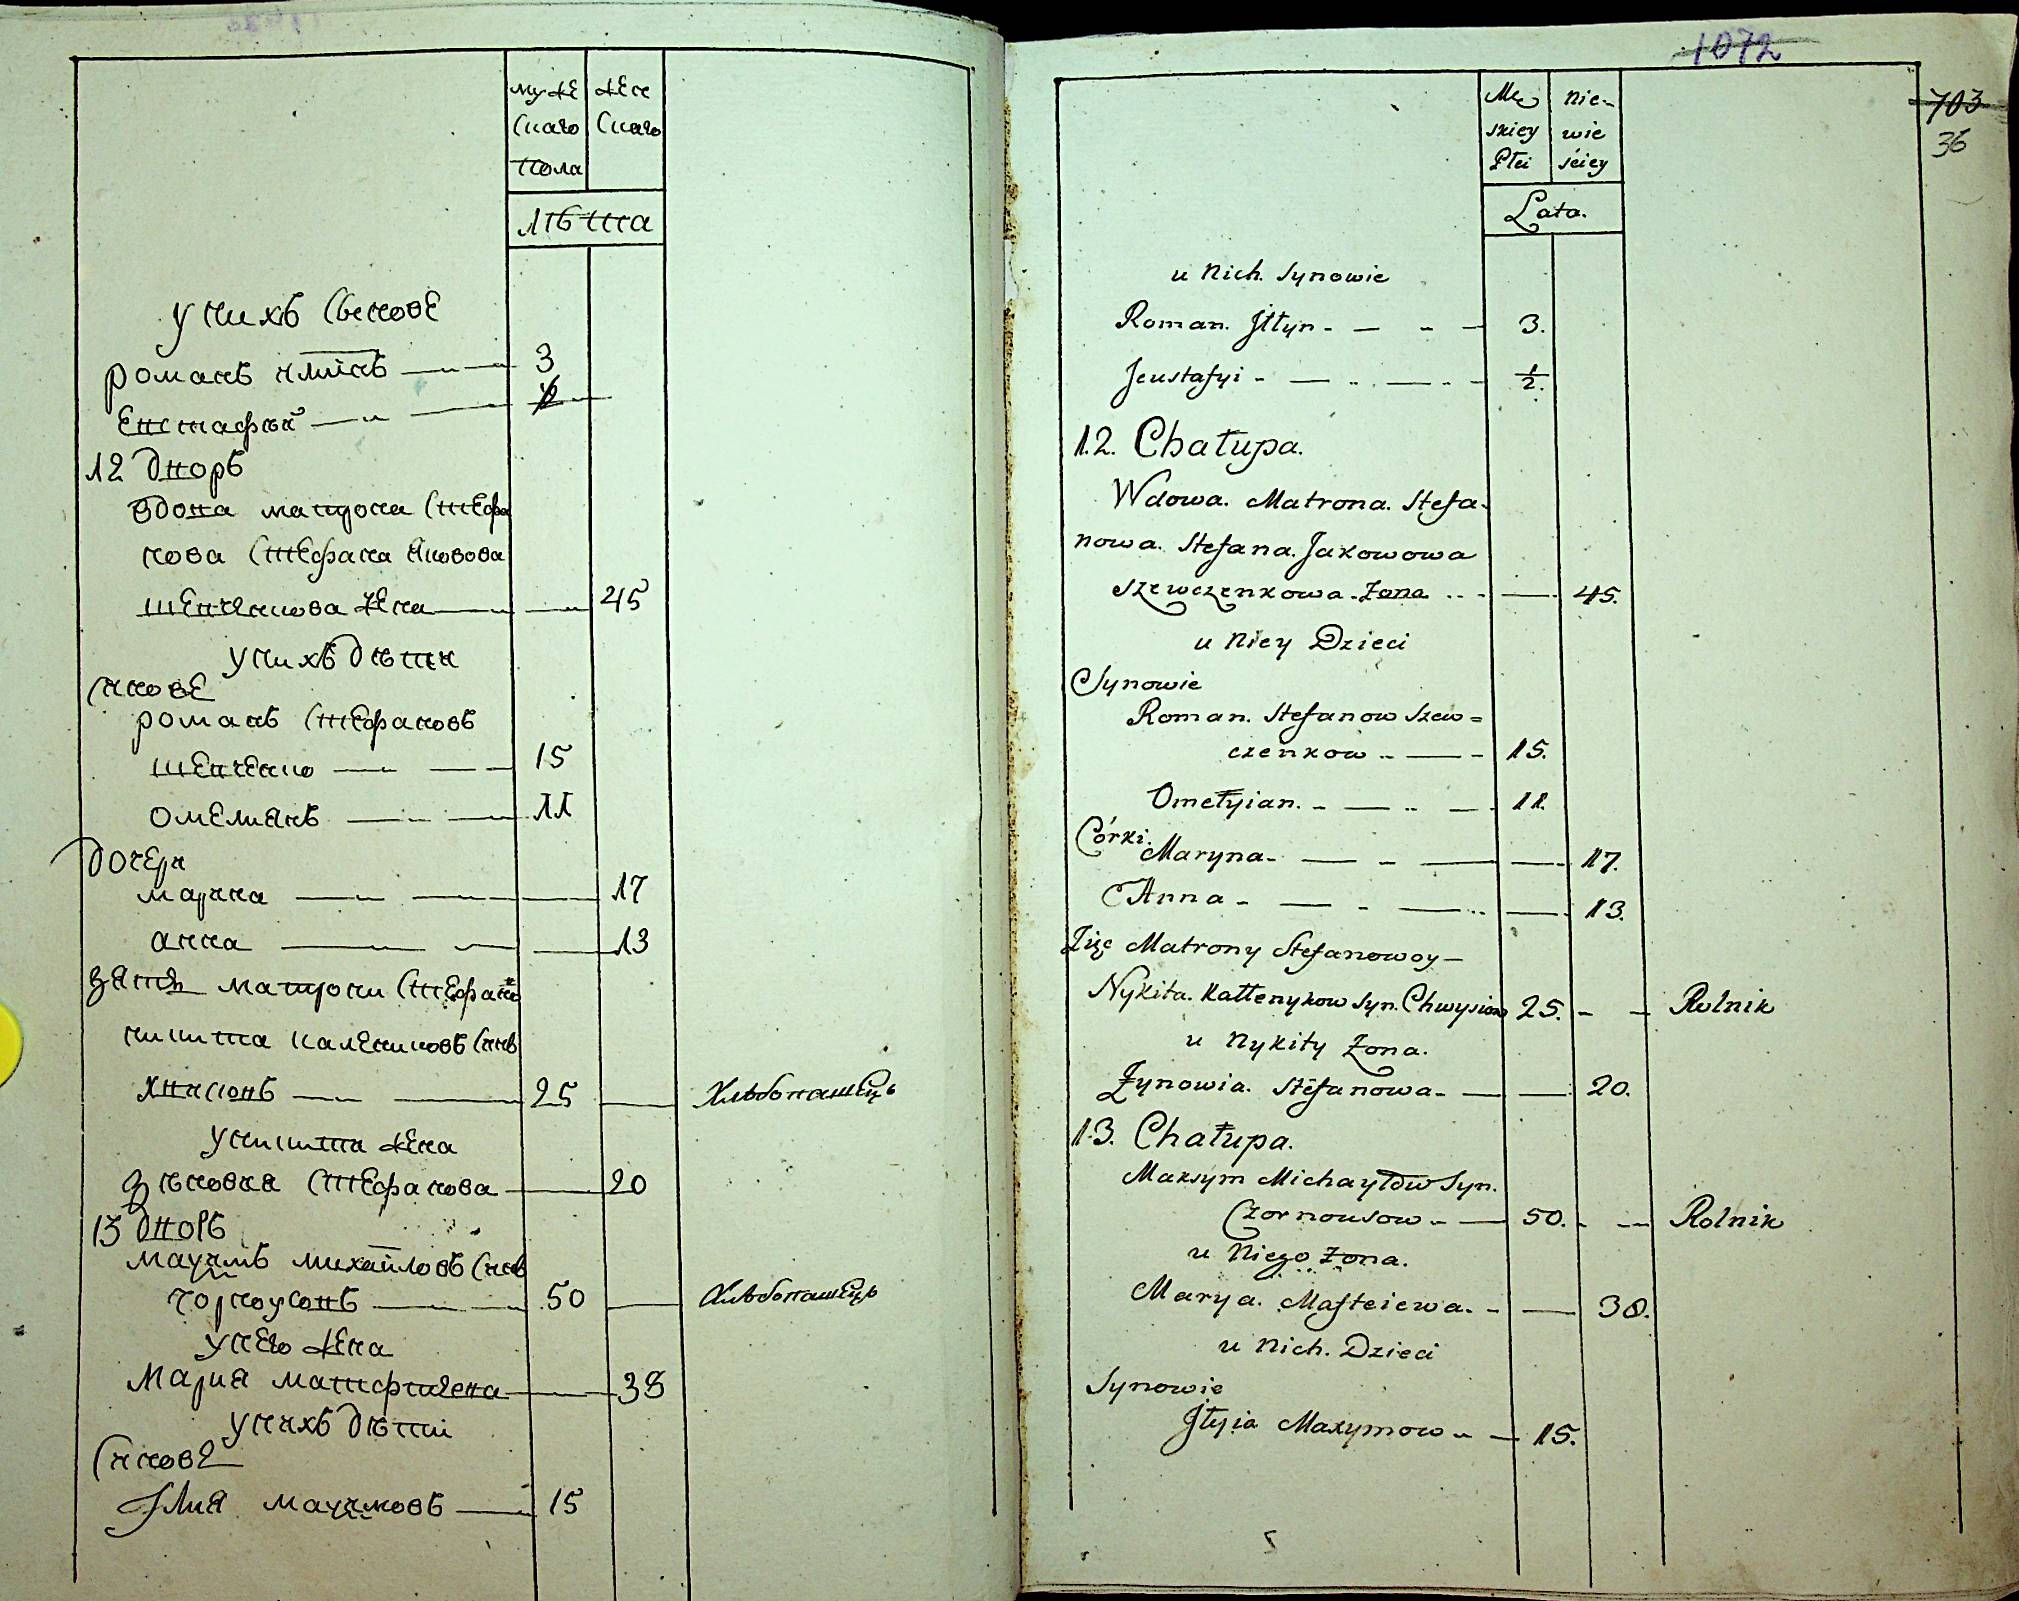 муже
скаго
пола
жен
скаго
лѣта
у нихъ сынове
романъ илıинъ 3
евстафий ½
12 дворъ
вдова матрона стефа
нова стефана яковова
шевченкова жена 45
у нихъ дѣти
синове
романъ стефановъ
шевченко 15
омелианъ 11
дочери
марина 17
анна 13
зять матрони стефано
никита калениковъ синъ
хвисювъ 25 хлѣбопашецъ
у никити жена
зѣновия стефанова 20
13 дворъ
мауимъ михайловъ синъ
чорноусовъ 50 хлѣбопашецъ
у него жена
мария матфиева 38
у нихъ дѣти
синове
Илия мауимовъ 15
1072
703
36
Mę
skiey
Płci
nie-
wie
sciey
Lata.
u nich. synowie
Roman. Jłłyn 3.
Jeustafyi ½.
12. Chałupa.
Wdowa. Matrona. Stefa-
nowa. Stefana. Jakowowa
szewczenkowa. Żona 45.
u niey Dzieci
Synowie
Roman. Stefanow Szew=
czenkow 15.
Omełyian. 11.
Córki.
Maryna 17.
Anna 13.
Zięc Matrony Stefanowoy
Nykita. Kałłenykow syn. Chwysiow 25. Rolnik
u Nykity Żona.
Zynowia. Stefanowa 20.
13. Chałupa.
Maksym Michayłow Syn.
Czornousow 50. Rolnik
u Niego Żona.
Marya. Mafteiewa. 38.
u nich. Dzieci
Synowie
Jłyia Maxymow 15.